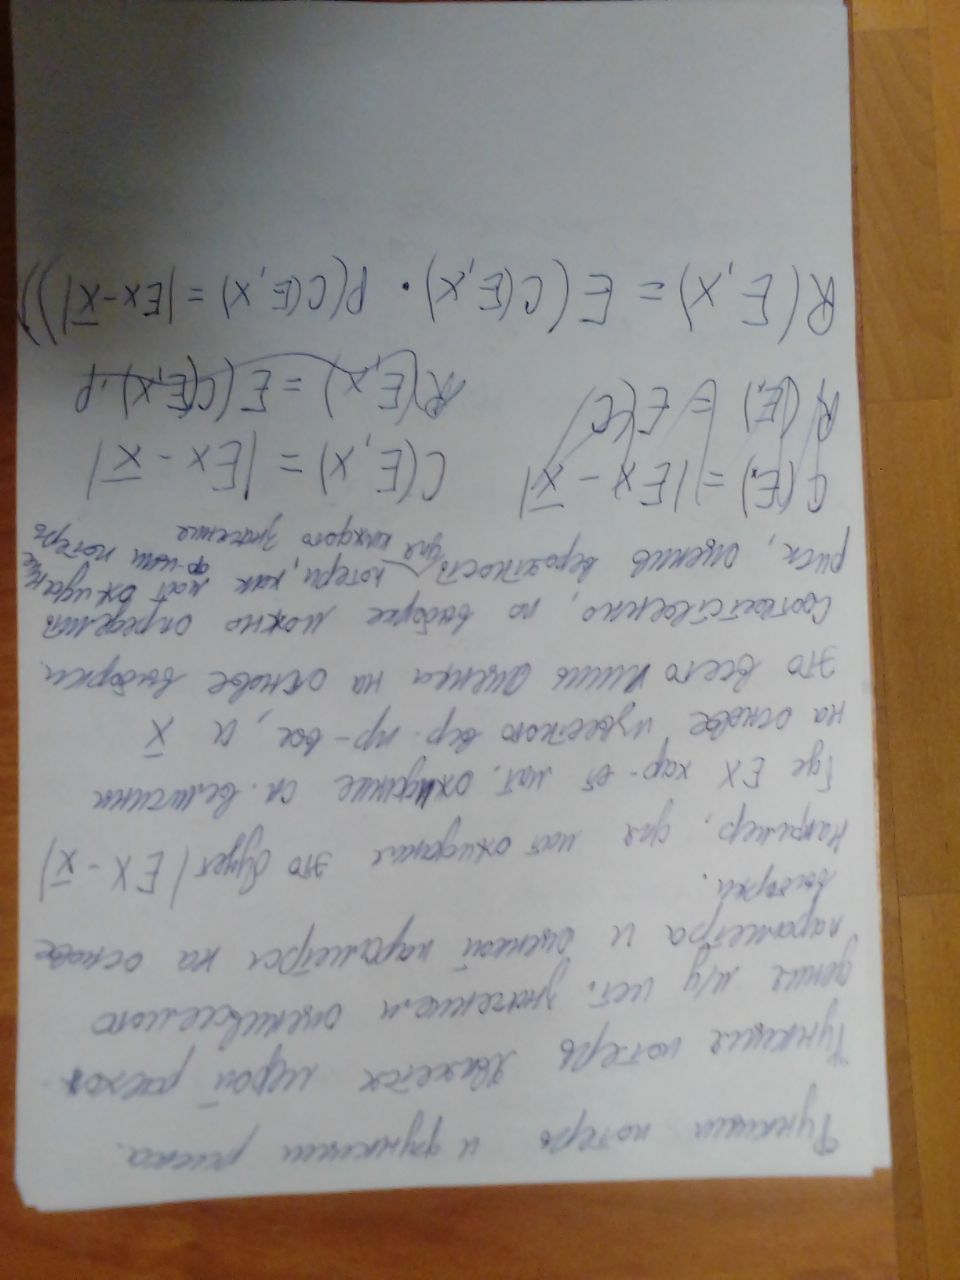 Функции потерь и функции риска.
Функция потерь является мерой расхож
дения м/у ист. значением оцениваемого
параметра и оценкой параметра на основе
выборки.
Например, для мат ожидания это будет |EX - x̅|
Где EX хар-ет мат. ожидание сл. величины
на основе известного вер. пр-ва, а x̅
это всего лишь оценка на основе выборки.
Соответственно, по выборке можно определить
риск, оценив вероятность потери, как мат ожидание ф-ции потерь
для каждого значения
C(E,x) = |Ex - x̅| C(E, x) = |Ex - x̅|
R(E,) = E(C R(E, x) = E(C(E,x) · P
R(E, x) = E(C(E,x) · P(C(E,x) = |Ex - x̅|))